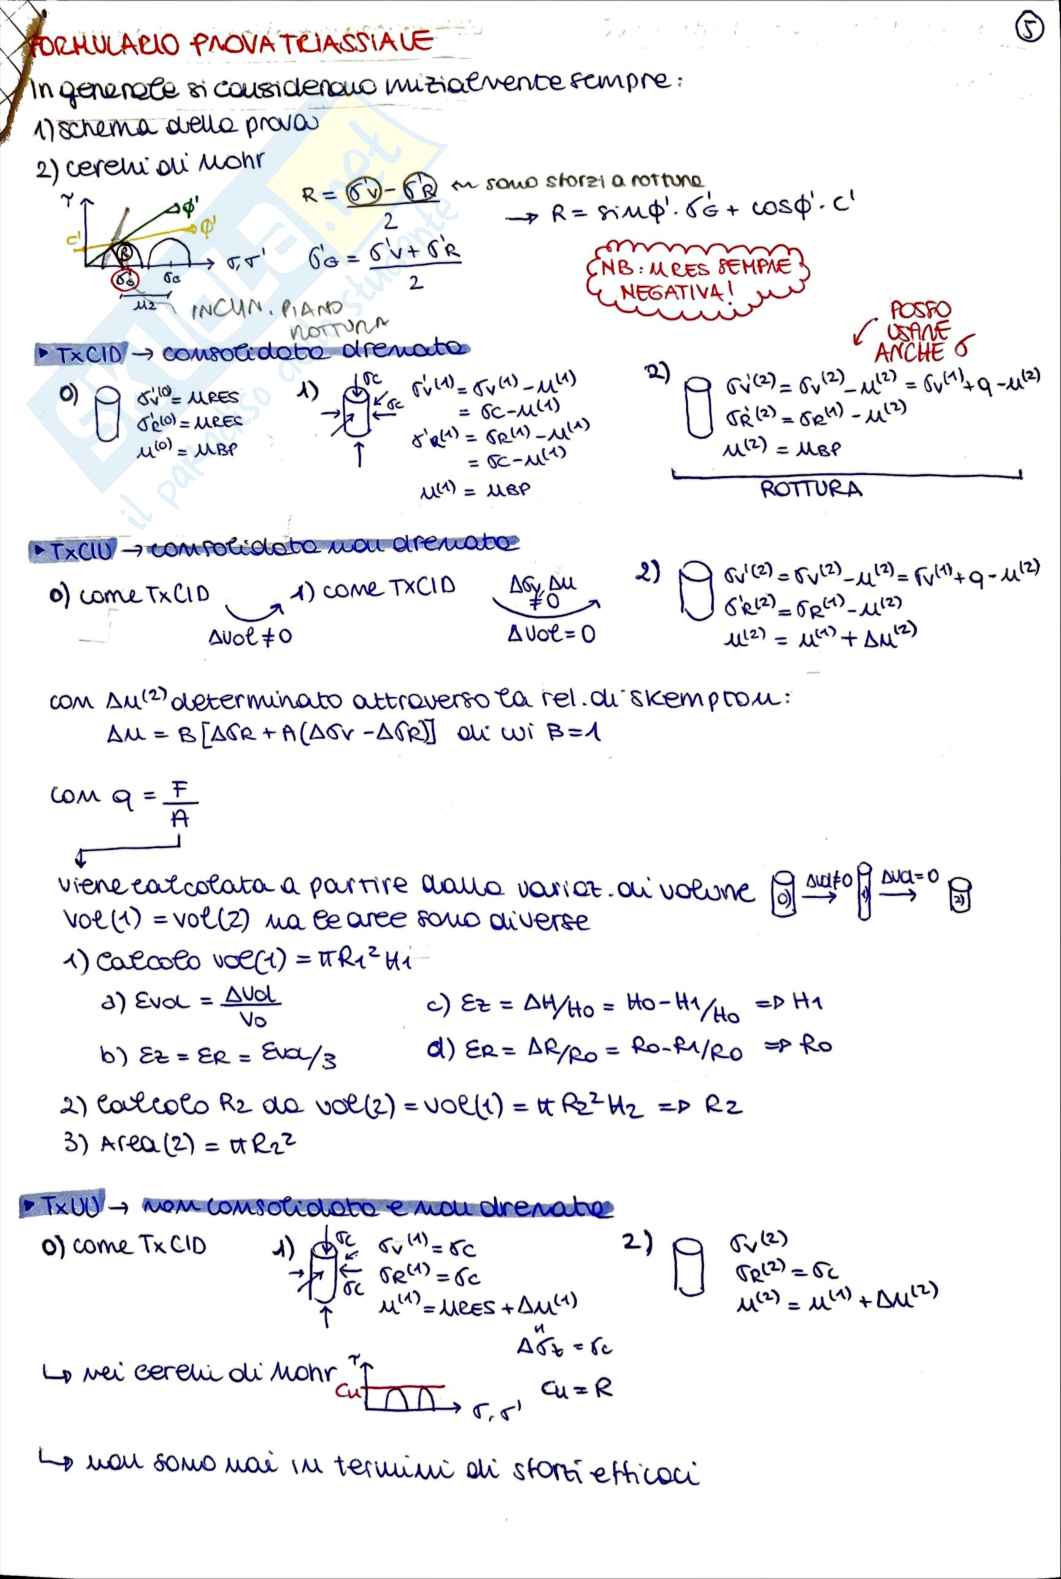 5
FORMULARIO PROVA TRIASSIALE
In generale si considerano inizialmente sempre:
1) schema della prova
2) cerchi di Mohr
τ φ' φ' c' R σ'G σG σ,σ' u2
R = σ'V - σ'R / 2 ← sono sforzi a rottura
→ R = sinφ'·σ'G + cosφ'·c'
σ'G = σ'V + σ'R / 2
INCLIN. PIANO ROTTURA
NB: uRES SEMPRE
NEGATIVA!
POSSO
USARE
ANCHE σ
▸ TxCID → consolidata drenata
0) σ'V(0) = uRES
σ'R(0) = uRES
u(0) = uBP
1) σc σc σ'V(1) = σV(1) - u(1)
= σc - u(1)
σ'R(1) = σR(1) - u(1)
= σc - u(1)
u(1) = uBP
2) σV'(2) = σV(2) - u(2) = σV(1) + q - u(2)
σR'(2) = σR(1) - u(2)
u(2) = uBP
ROTTURA
▸ TxCIU → consolidata non drenata
0) come TxCID 1) come TXCID
ΔVol ≠ 0
Δσy, Δu ≠ 0
ΔVol = 0
2) σV'(2) = σV(2) - u(2) = σV(1) + q - u(2)
σ'R(2) = σR(1) - u(2)
u(2) = u(1) + Δu(2)
con Δu(2) determinato attraverso la rel. di skempton:
Δu = B[ΔσR + A(ΔσV - ΔσR)] di cui B=1
con q = F / A
viene calcolata a partire dalla variaz. di volume 0) ΔVol≠0 → 1) ΔVol=0 → 2)
Vol(1) = vol(2) ma le aree sono diverse
1) Calcolo vol(1) = πR1²H1
a) εvol = ΔVol / V0
c) εz = ΔH/H0 = H0-H1/H0 => H1
b) εz = εR = εvol/3
d) εR = ΔR/R0 = R0-R1/R0 => R0
2) Calcolo R2 da vol(2) = vol(1) = πR2²H2 => R2
3) Area(2) = πR2²
▸ TxUU → non consolidata e non drenata
0) come TxCID
1) σc σc σV(1) = σc
σR(1) = σc
u(1) = uRES + Δu(1)
Δσz = σc
2) σV(2)
σR(2) = σc
u(2) = u(1) + Δu(2)
↳ nei cerchi di Mohr τ Cu σ,σ' Cu = R
↳ non sono mai in termini di sforzi efficaci